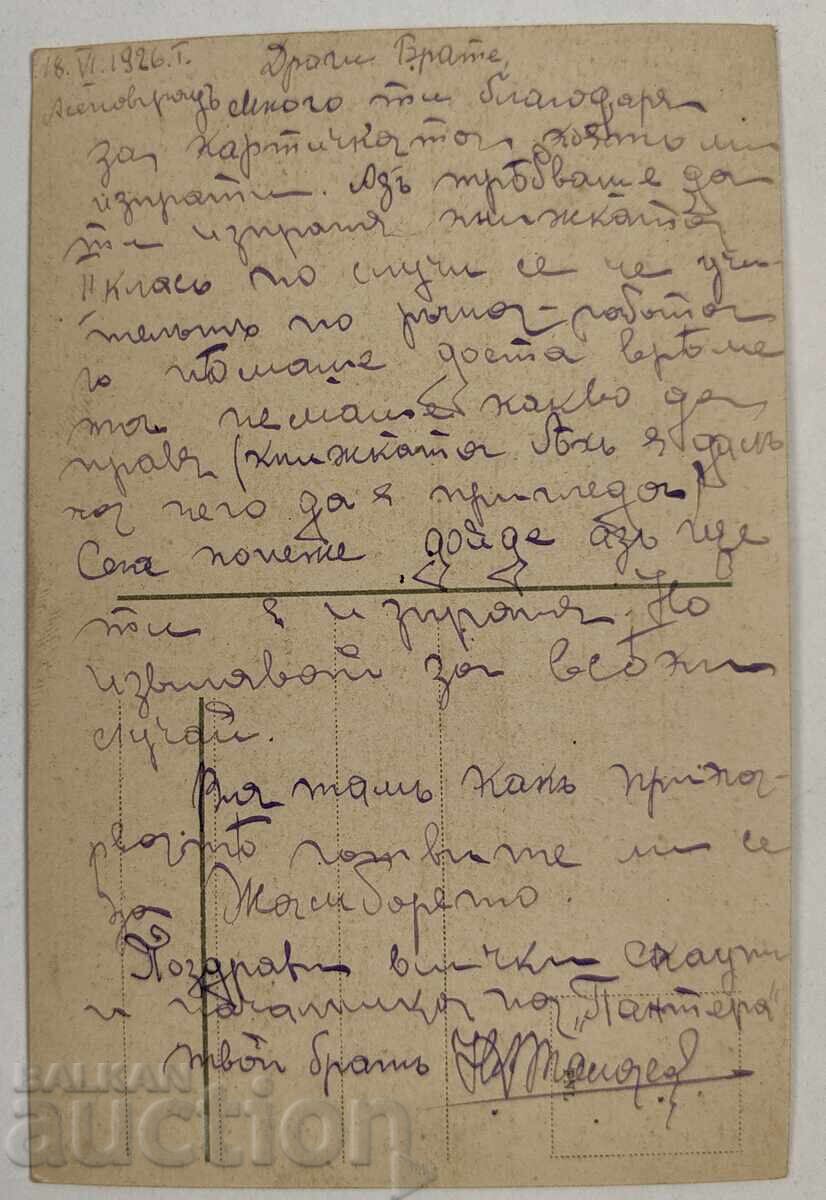 18. VI. 1926. Г.
Драги Брате,
Асеновградъ Много ти благодаря
за картичката която ми
изпрати. Азъ трѣбваше да
ти изпратя книжката
II класъ но случи се че учи-
тельтъ по ръчна-работа
нѣмаше доста врѣме
та немаше какво да
правя (книжката бѣхъ я далъ
на него да я пригледа)
Сега понеже дойде азъ ще
ти я изпратя. Но
извинявай за всѣки
случай.
Вия тамъ какъ прика-
рвате готвите ли се
за Жамборето.
Поздрави всички скаути
и началника на „Пантера“
твой братъ
BALKAN
auction